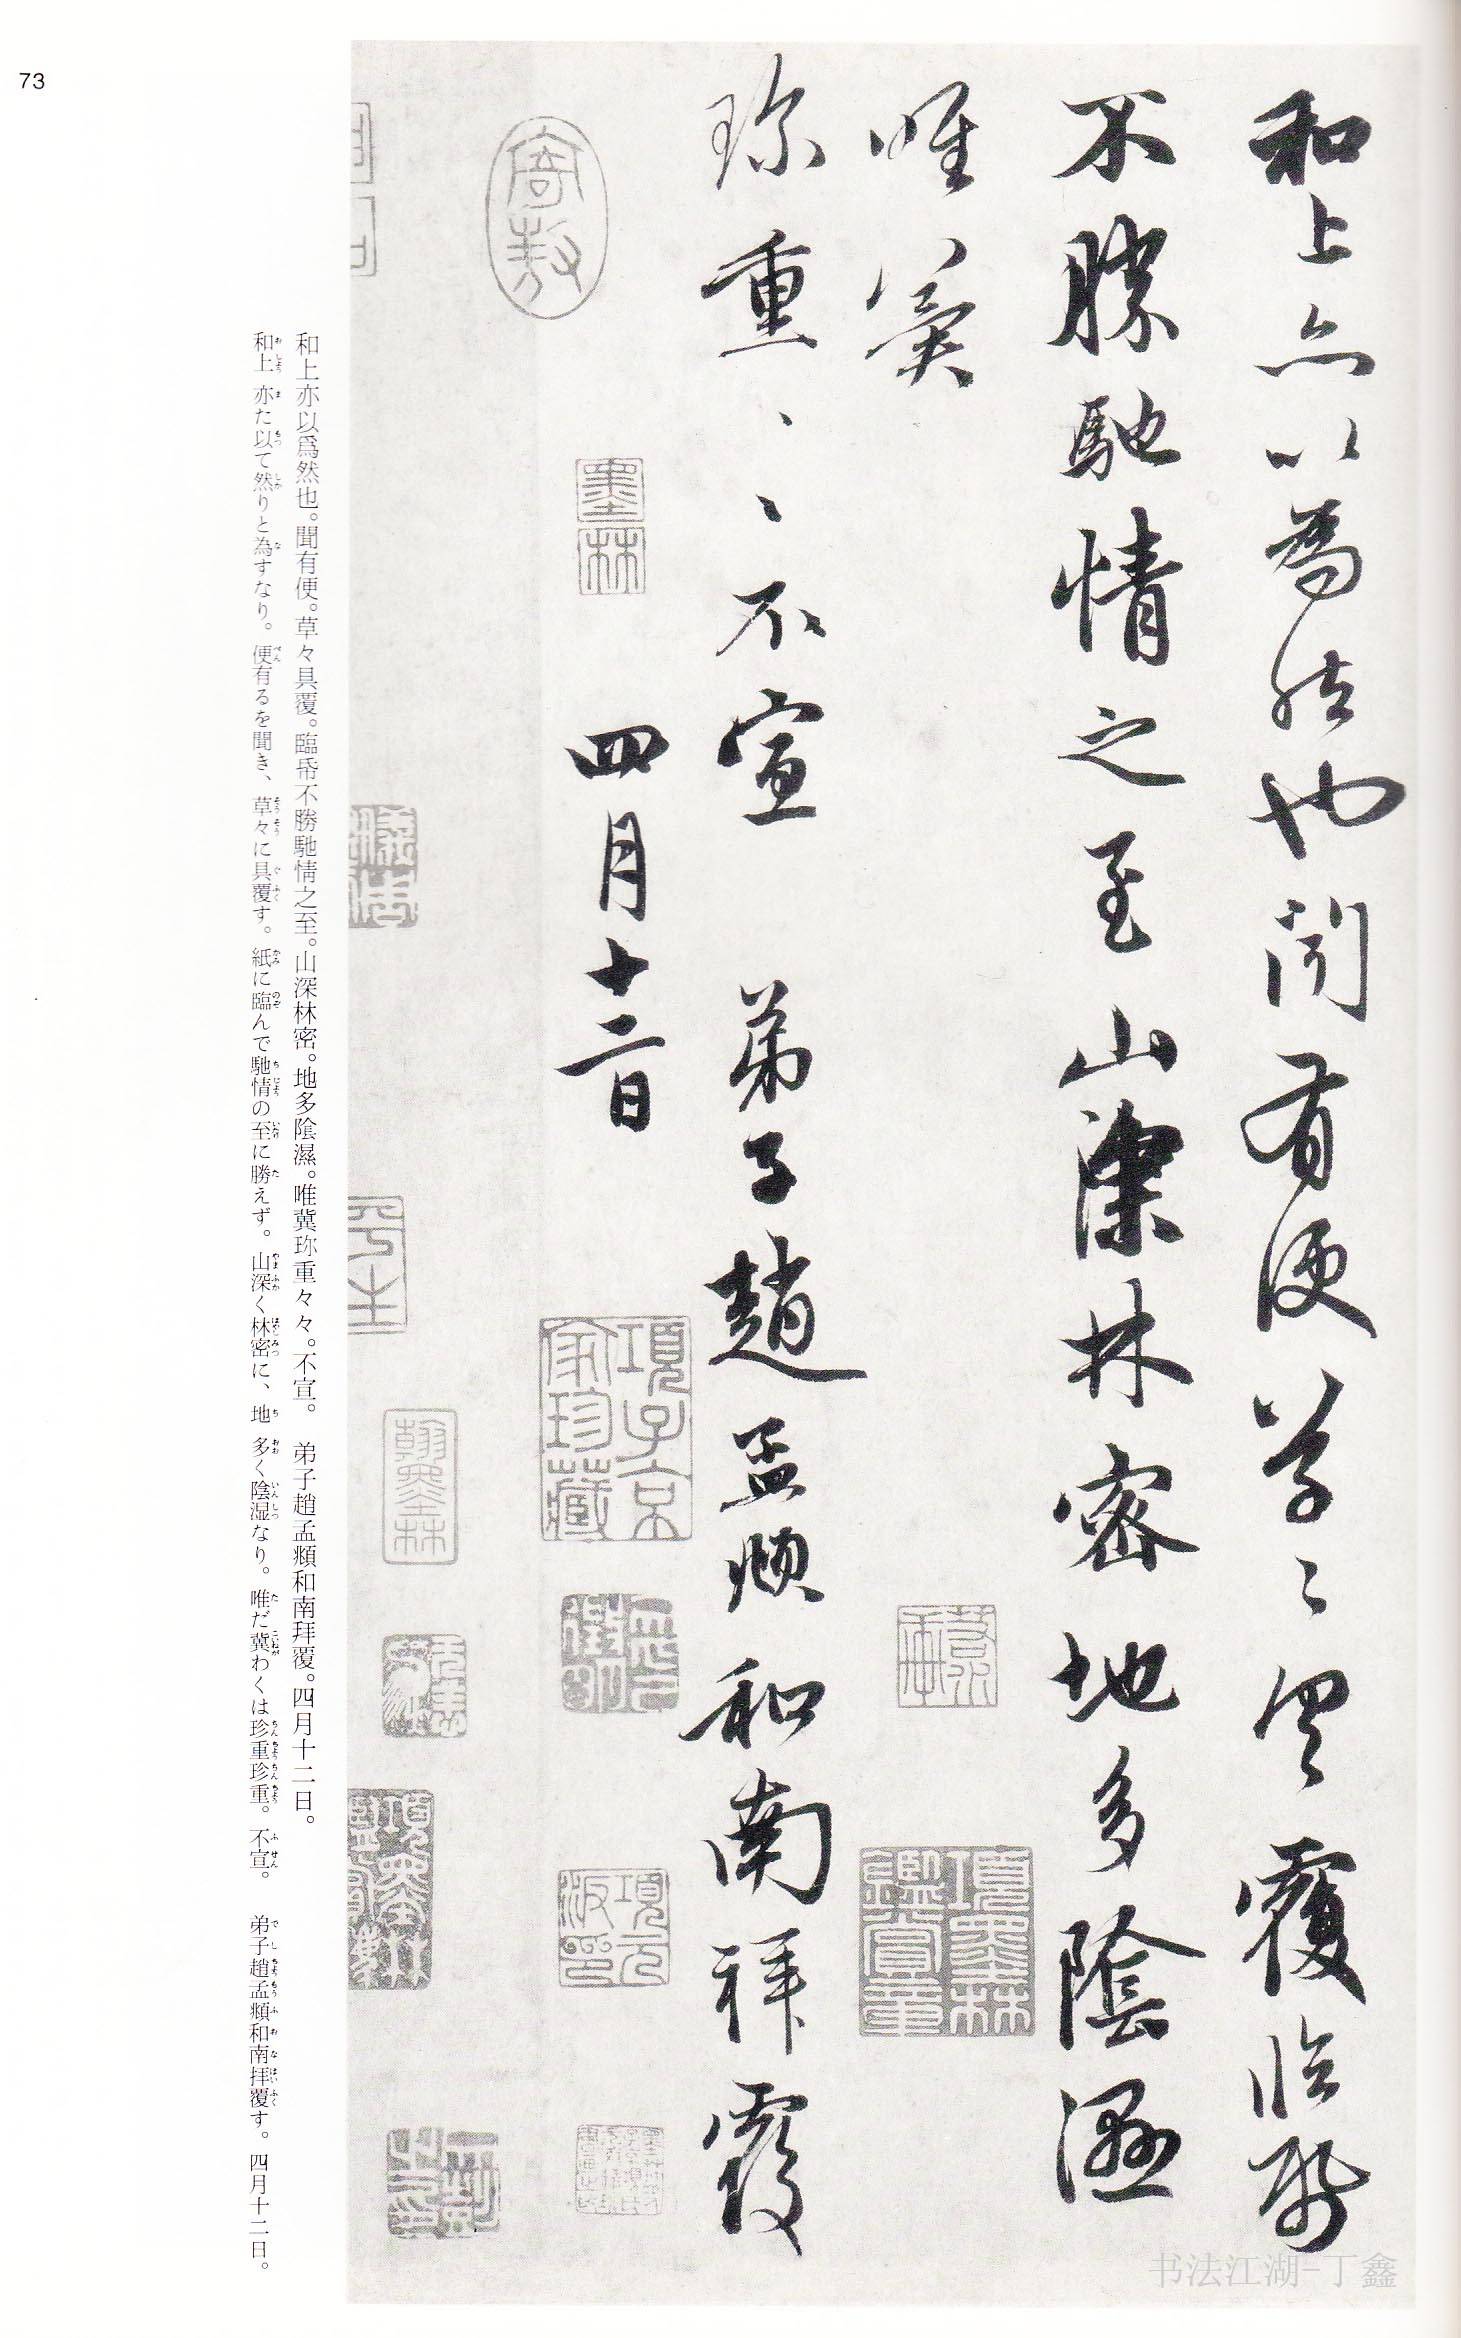 和上亦以為然也聞有便草々具覆臨帋
不勝馳情之至山深林密地多陰濕
唯冀
珎重、、不宣 弟子趙孟頫和南拜覆
四月十二日
墨林
項子京家珍藏
項墨林鑑賞章
項元汴印
翰墨林
和上亦以爲然也。聞有便。草々具覆。臨帋不勝馳情之至。山深林密。地多陰濕。唯冀珎重々々。不宣。 弟子趙孟頫和南拜覆。四月十二日。
和上亦た以て然りと為すなり。便有るを聞き、草々に具覆す。紙に臨んで馳情の至に勝えず。山深く林密に、地多く陰湿なり。唯だ冀わくは珍重珍重。不宣。 弟子趙孟頫和南拝覆す。四月十二日。
73
书法江湖-丁鑫